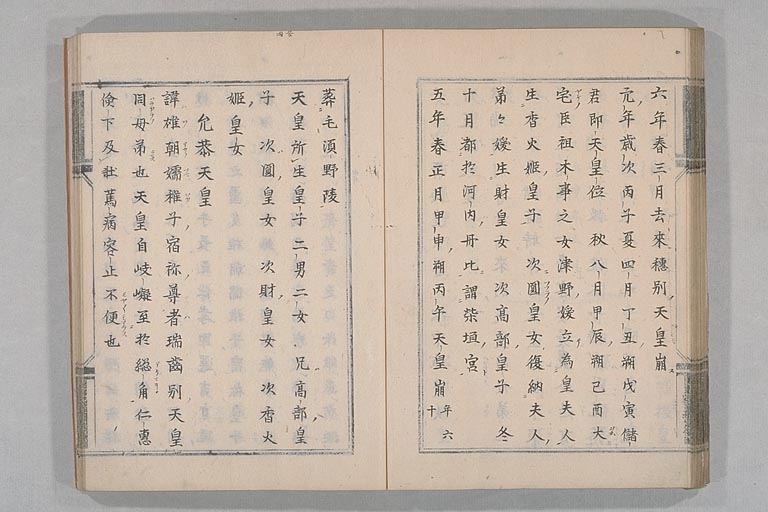 六年春三月去來穗別天皇崩
元年歲次丙子夏四月丁丑朔戊寅儲
君即天皇位 秋八月甲辰朔己酉大
宅臣祖木事之女津野媛立為皇夫人
生香火姬皇子 次圓皇女復納夫人
弟々媛生財皇女 次髙部皇子 冬
十月都於河內丹比謂柴垣宮
五年春正月甲申朔丙午天皇崩 年六十
葬毛須野陵
天皇所生皇子二男二女 兄髙部皇
子 次圓皇女 次財皇女 次香火
姬皇女
允恭天皇
諱雄朝嬬稚子宿祢尊者瑞齒別天皇
同母弟也天皇自岐嶷至於総角仁惠
儉下及壯篤病容止不便也